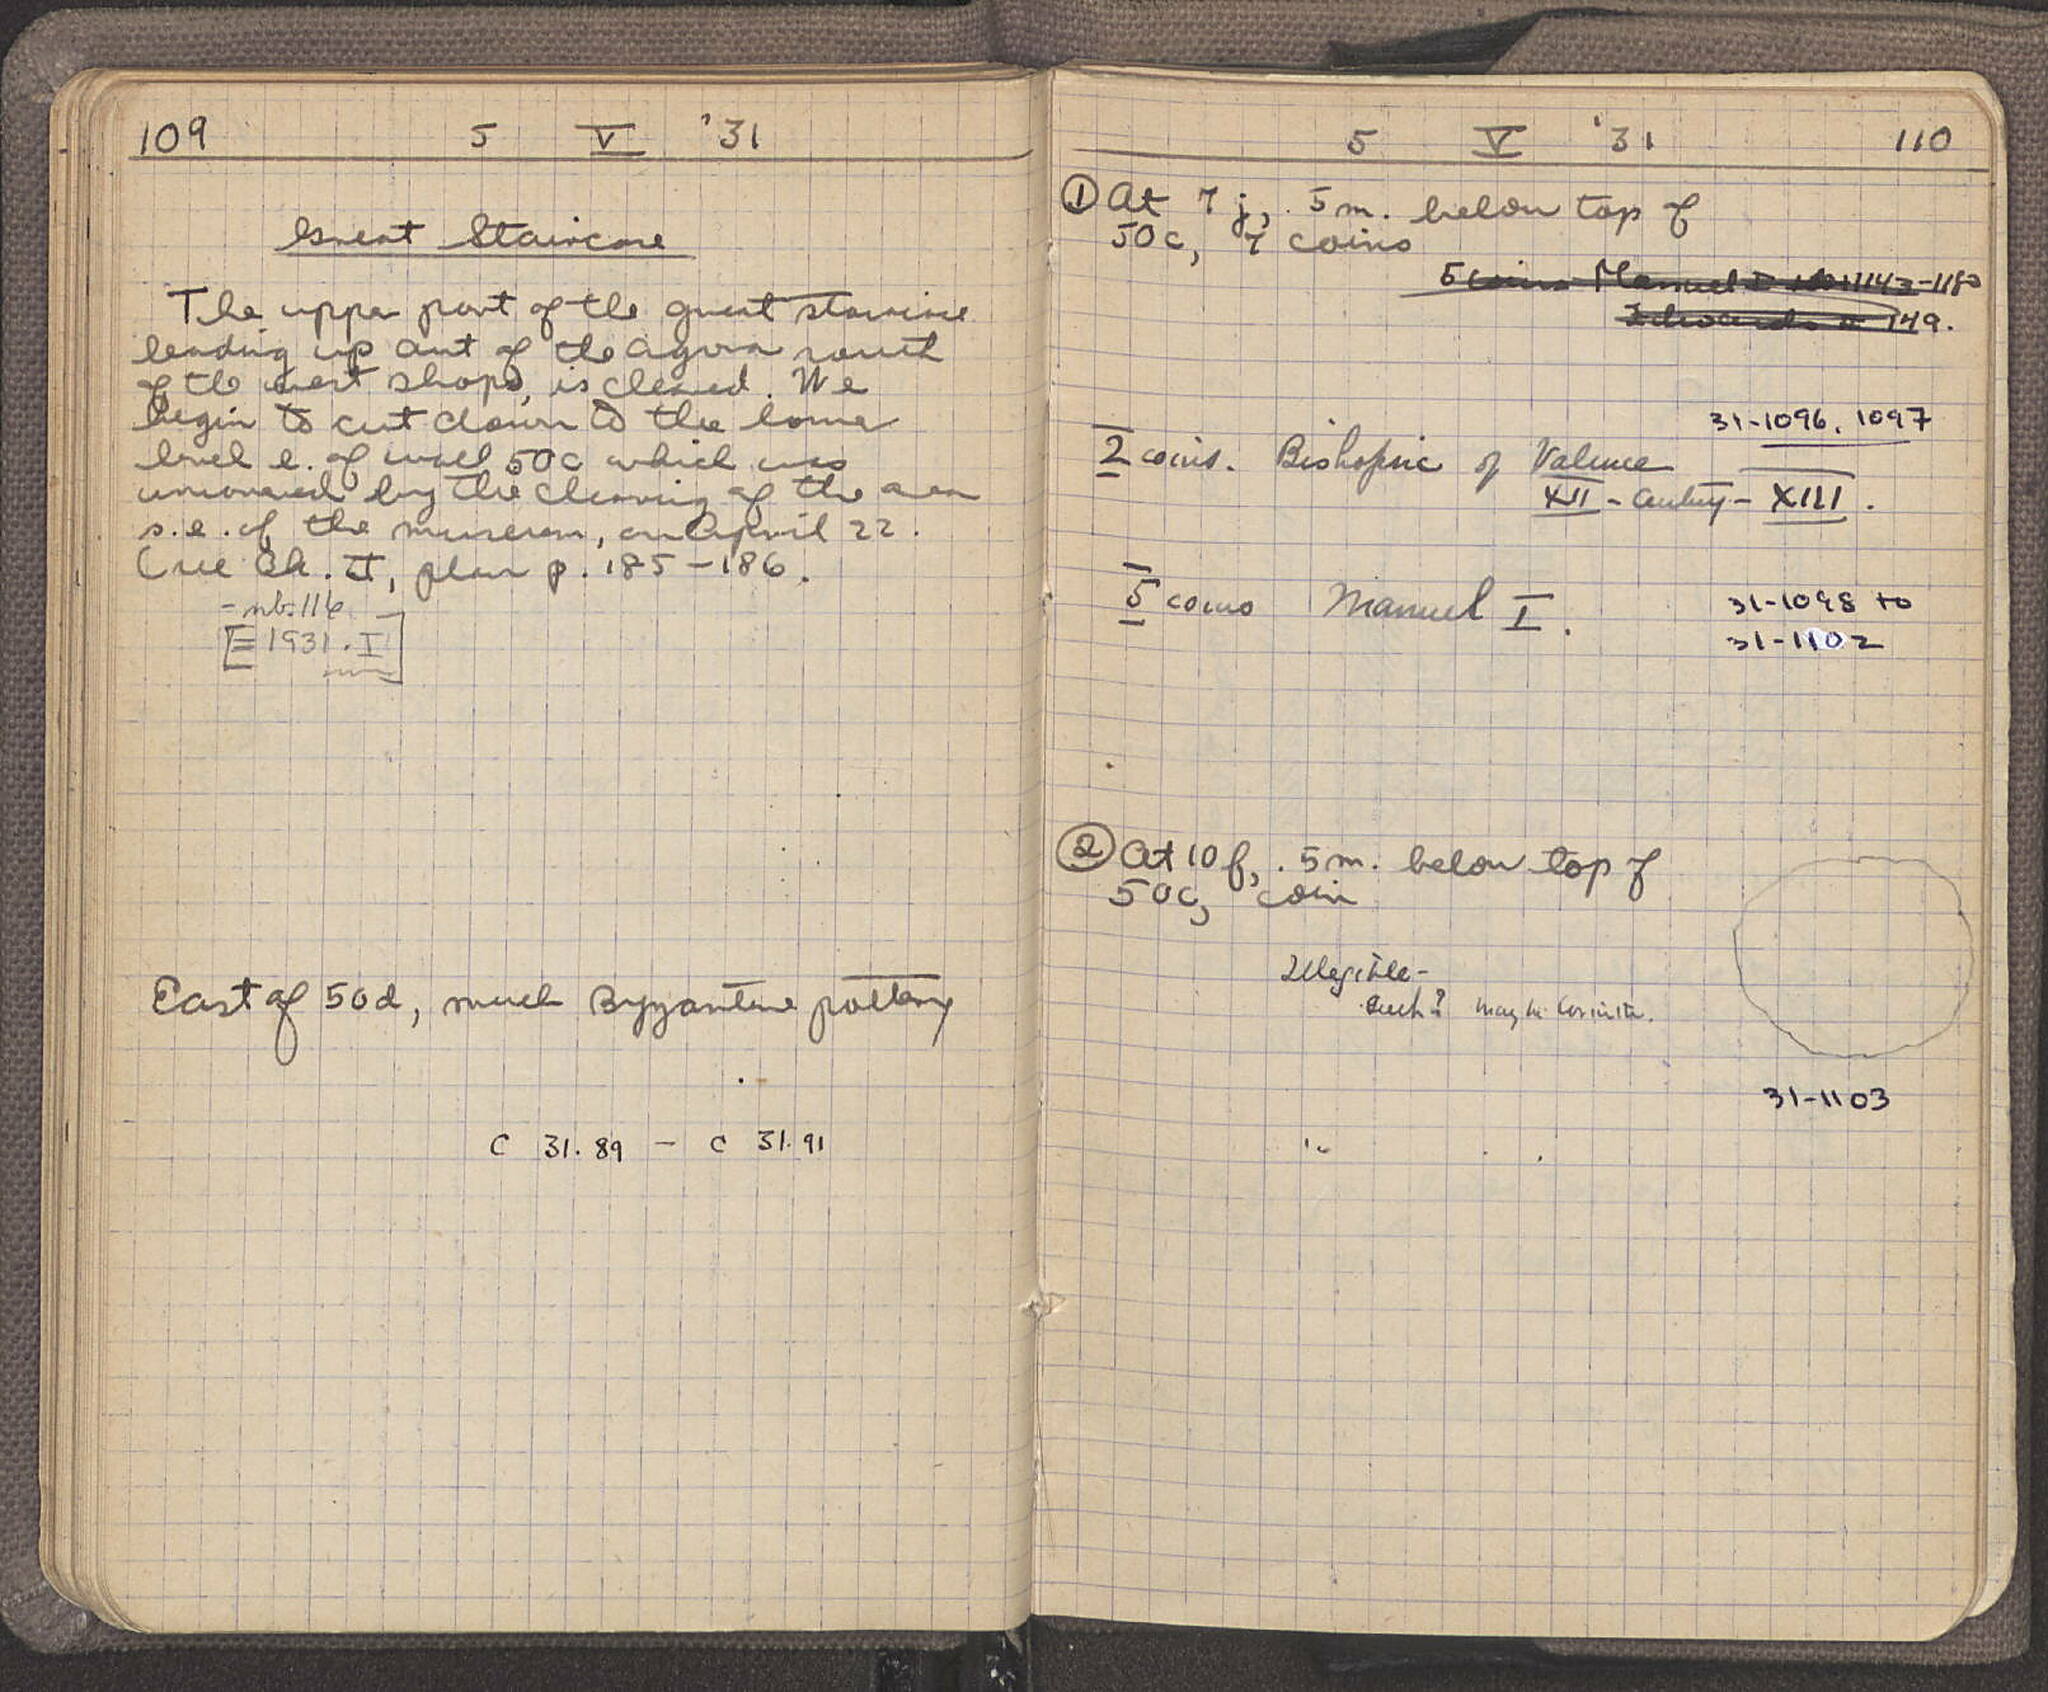 109 5 V '31
Great Staircase
The upper part of the great staircase
leading up out of the agora south
of the west shops, is cleared. We
begin to cut down to the lower
level e. of wall 50c which was
uncovered by the clearing of the area
s.e. of the museum, on April 22.
(see Bk. II, plan p. 185-186.
- nb. 116 -
[= 1931. I]
East of 50d, much Byzantine pottery
C 31.89 - C 31.91
5 V '31 110
① At 7 j, .5 m. below top of
50c, 7 coins
5 coins Manuel I 1143-1180
Edwards 149.
31-1096, 1097
2 coins. Bishopric of Valence
XII - century - XIII.
5 coins Manuel I. 31-1098 to
31-1102
② At 10 f, .5 m. below top of
50c, coin
Illegible -
may be Corinth.
31-1103